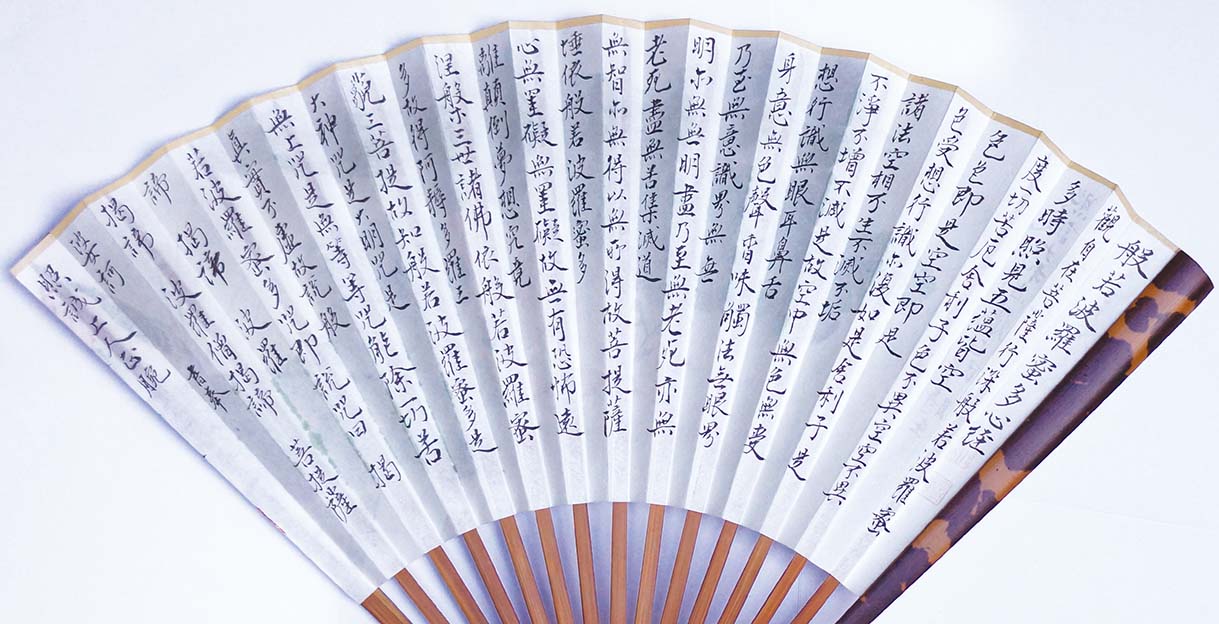 般若波羅蜜多心経
觀自在菩薩行深般若波羅蜜
多時照見五蘊皆空
度一切苦厄舍利子色不異空空不異
色色即是空空即是
色受想行識亦復如是舍利子是
諸法空相不生不滅不垢
不淨不增不減是故空中無色無受
想行識無眼耳鼻舌
身意無色聲香味觸法無眼界
乃至無意識界無無
明亦無無明盡乃至無老死亦無
老死盡無苦集滅道
無智亦無得以無所得故菩提薩
埵依般若波羅蜜多
心無罣礙無罣礙故無有恐怖遠
離顛倒夢想究竟
涅槃三世諸佛依般若波羅蜜
多故得阿耨多羅三
藐三菩提故知般若波羅蜜多是
大神咒是大明咒是
無上咒是無等等咒能除一切苦
真實不虛故說般
若波羅蜜多咒即說咒曰 揭
諦 揭帝 波羅
揭諦 波羅僧揭諦 菩提薩
婆訶 奉
照誠上人正腕